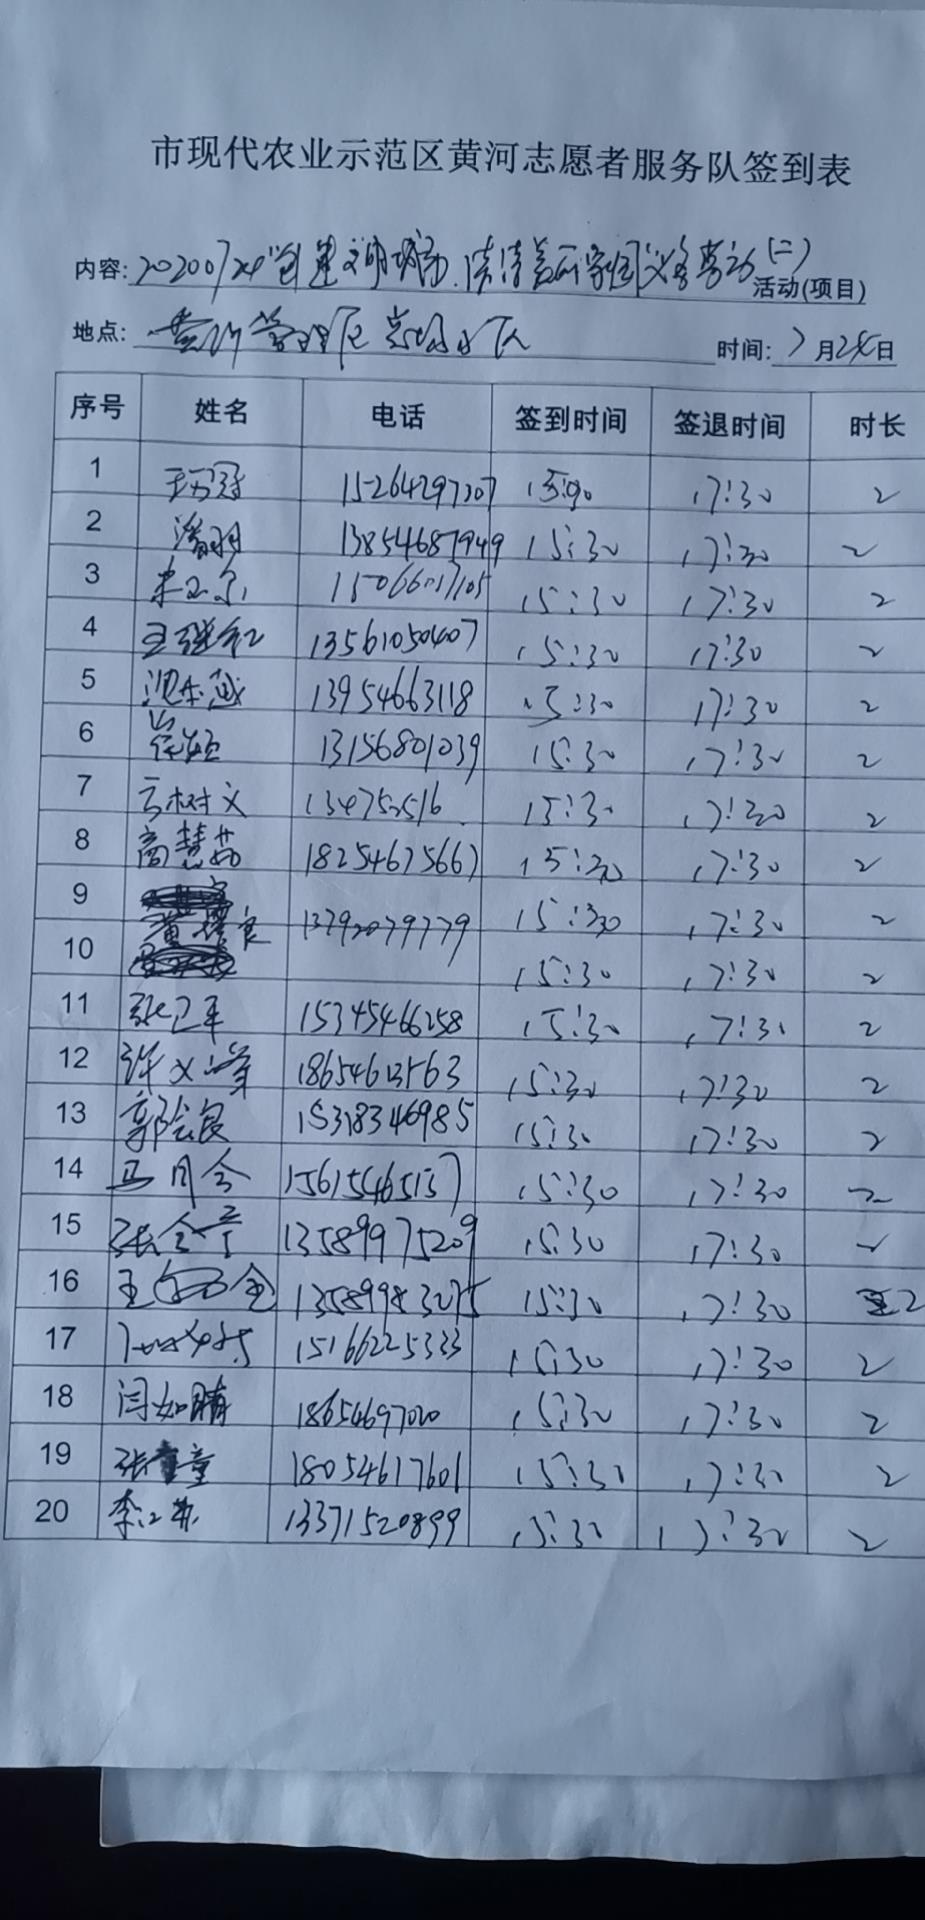 市现代农业示范区黄河志愿者服务队签到表
内容: 20200724创建文明城市、清洁美丽家园义务劳动(二) 活动(项目)
地点: 管理区 时间: 7月24日
序号 姓名 电话 签到时间 签退时间 时长
1 15264297207 15:30 17:30 2
2 潘羽 13854687949 15:30 17:30 2
3 15066017105 15:30 17:30 2
4 13561050407 15:30 17:30 2
5 13954663118 15:30 17:30 2
6 13156801039 15:30 17:30 2
7 云树义 134752516 15:30 17:30 2
8 高慧茹 18254675667 15:30 17:30 2
9 15:30 17:30 2
黄 良 13792079779
10 15:30 17:30 2
11 张卫军 15345466258 15:30 17:30 2
12 许义峰 18654613563 15:30 17:30 2
13 郭会良 15318346985 15:30 17:30 2
14 马月会 15615465157 15:30 17:30 2
15 张全 13589975209 15:30 17:30 2
16 王 金 13589983075 15:30 17:30 2
17 15166225333 15:30 17:30 2
18 闫如晴 18654697020 15:30 17:30 2
19 张童 18054617601 15:30 17:30 2
20 李 13371520899 15:30 17:30 2